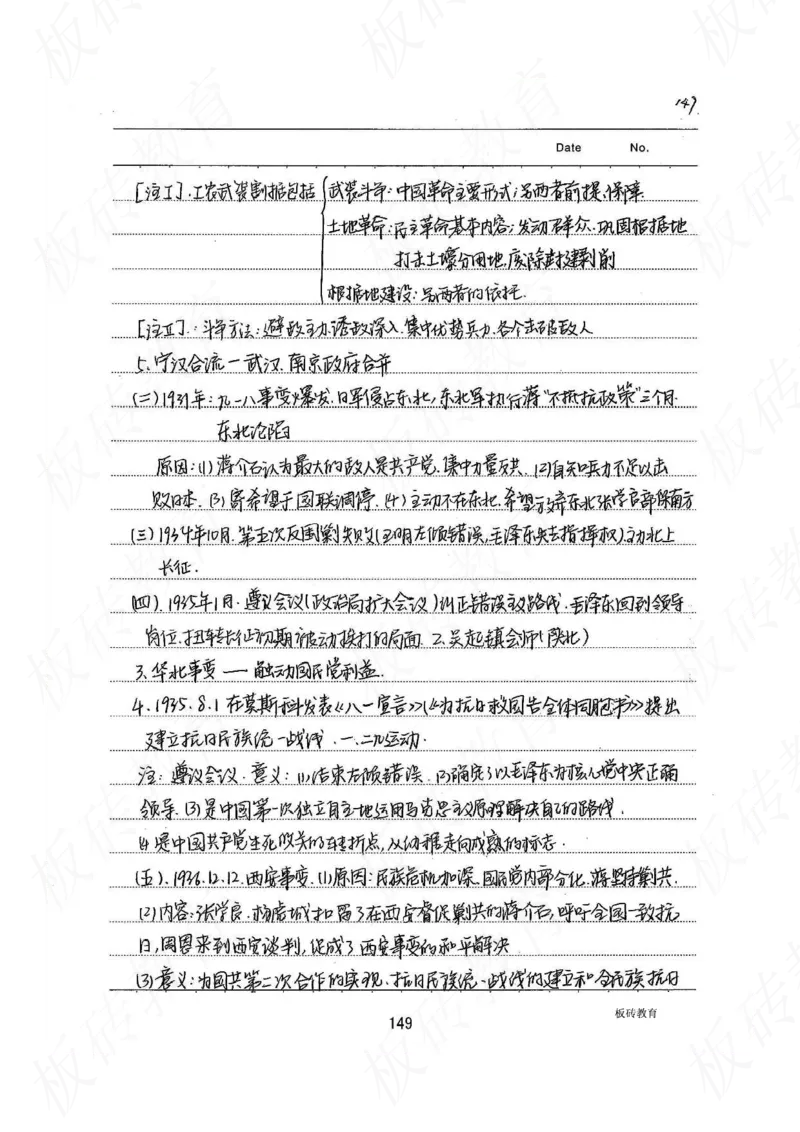 149
Date No.
[注I].工农武装割据包括 武装斗争:中国革命主要形式;另两者前提、保障
土地革命:民主革命基本内容;发动群众、巩固根据地
打击土壕分田地,废除封建剥削
根据地建设:另两者的依托.
[注II].斗争方法:避敌主力、诱敌深入、集中优势兵力、各个击破敌人
5、宁汉合流一武汉、南京政府合并
(二)1931年:九一八事变爆发、日军侵占东北,东北军执行蒋"不抵抗政策"三个月.
东北沦陷
原因:(1)蒋介石认为最大的敌人是共产党、集中力量反共.(2)自知兵力不足以击
败日本.(3)寄希望于国联调停.(4)主动不在东北,希望放弃东北张学良部保南方
(三)1934年10月.第五次反围剿失败(王明左倾错误,毛泽东失去指挥权)主动北上
长征.
(四).1935年1月.遵义会议(政治局扩大会议)纠正错误主义路线、毛泽东回到领导
岗位.扭转长征初期被动挨打的局面 2.吴起镇会师(陕北)
3、华北事变——触动国民党利益.
4.1935.8.1在莫斯科发表《八一宣言》(《为抗日救国告全体同胞书》)提出
建立抗日民族统一战线.一、二九运动.
注:遵义会议.意义:(1)结束左倾错误.(2)确定了以毛泽东为核心党中央正确
领导.(3)是中国第一次独立自主地运用马克思主义原理解决自己的路线.
(4)是中国共产党生死攸关的转折点,从幼稚走向成熟的标志.
(五).1936.12.12.西安事变.(1)原因:民族危机加深、国民党内部分化、蒋坚持剿共.
(2)内容:张学良、杨虎城扣留了在西安督促剿共的蒋介石,呼吁全国一致抗
日,周恩来到西安谈判,促成了西安事变的和平解决
(3)意义:为国共第二次合作的实现、抗日民族统一战线的建立和全民族抗日
板砖教育
149